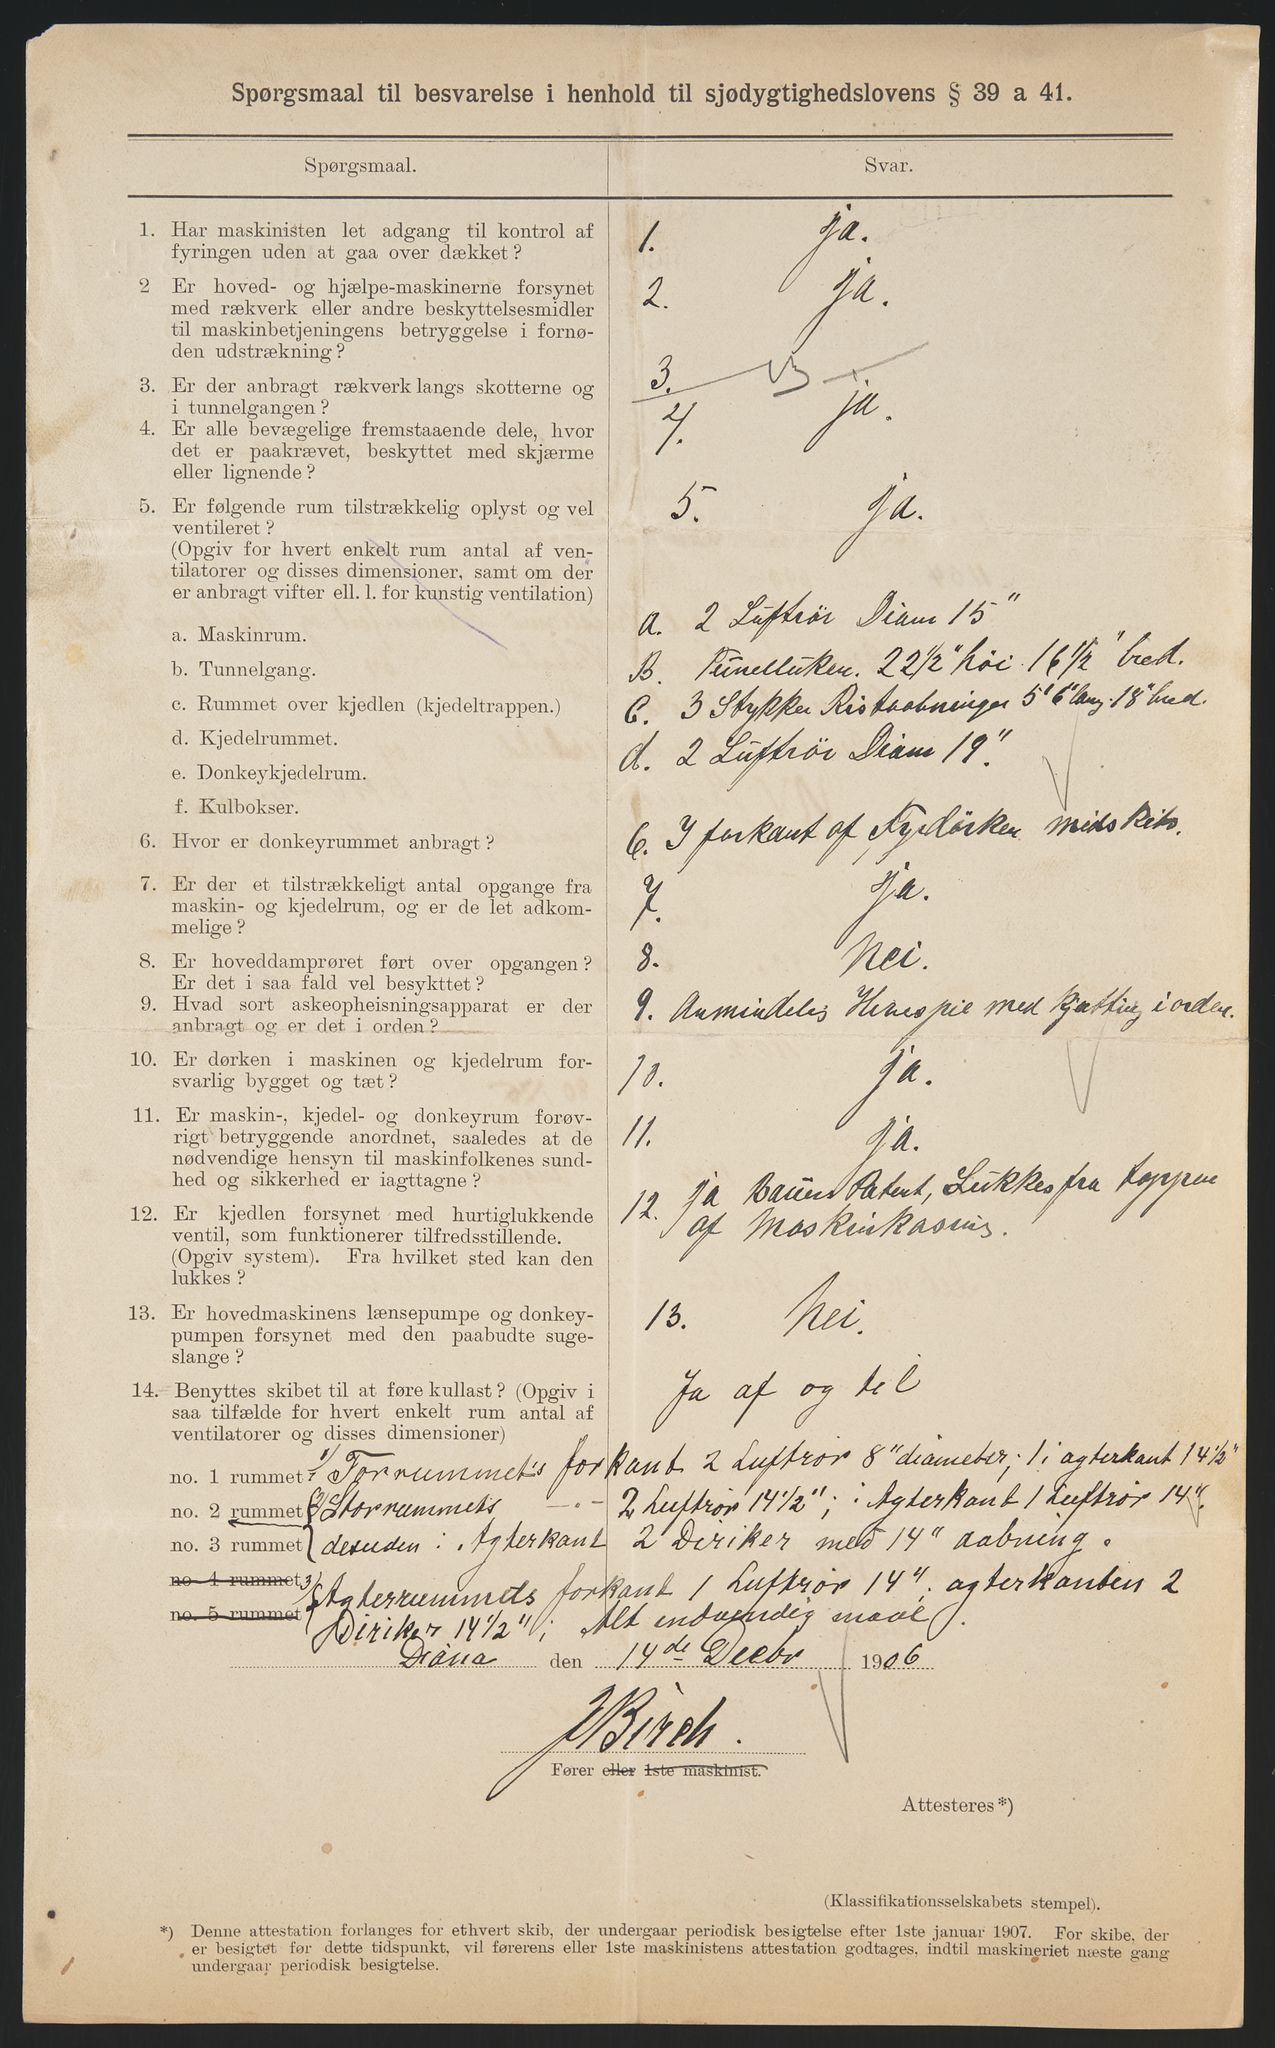 Spørgsmaal til besvarelse i henhold til sjødygtighedslovens § 39 a 41.
Spørgsmaal.
Svar.
1. Har maskinisten let adgang til kontrol af
fyringen uden at gaa over dækket?
1. Ja.
2 Er hoved- og hjælpe-maskinerne forsynet
med rækverk eller andre beskyttelsesmidler
til maskinbetjeningens betryggelse i fornø-
den udstrækning?
2. Ja.
3. Er der anbragt rækverk langs skotterne og
i tunnelgangen?
3.
4. Er alle bevægelige fremstaaende dele, hvor
det er paakrævet, beskyttet med skjærme
eller lignende?
4. ja.
5. Er følgende rum tilstrækkelig oplyst og vel
ventileret?
(Opgiv for hvert enkelt rum antal af ven-
tilatorer og disses dimensioner, samt om der
er anbragt vifter ell. l. for kunstig ventilation)
5. Ja.
a. Maskinrum.
a. 2 Luftrör Diam 15"
b. Tunnelgang.
B. Tunelluken. 22 1/2" höi 16 1/2" bred.
c. Rummet over kjedlen (kjedeltrappen.)
C. 3 Stykker Ristaabninger 5' 6" lang 18" bred.
d. Kjedelrummet.
d. 2 Luftrör Diam 19".
e. Donkeykjedelrum.
f. Kulbokser.
6. Hvor er donkeyrummet anbragt?
6. I forkant af Fyrdörken midskibs.
7. Er der et tilstrækkeligt antal opgange fra
maskin- og kjedelrum, og er de let adkom-
melige?
7. Ja.
8. Er hoveddamprøret ført over opgangen?
Er det i saa fald vel besykttet?
8. Nei.
9. Hvad sort askeopheisningsapparat er der
anbragt og er det i orden?
9. Anmindelig Hivespie med Kjætting i orden.
10. Er dørken i maskinen og kjedelrum for-
svarlig bygget og tæt?
10. Ja.
11. Er maskin-, kjedel- og donkeyrum forøv-
rigt betryggende anordnet, saaledes at de
nødvendige hensyn til maskinfolkenes sund-
hed og sikkerhed er iagttagne?
11. Ja.
12. Er kjedlen forsynet med hurtiglukkende
ventil, som funktionerer tilfredsstillende.
(Opgiv system). Fra hvilket sted kan den
lukkes?
12. Ja Patent, Lukkes fra toppen
af Maskinkasing.
13. Er hovedmaskinens lænsepumpe og donkey-
pumpen forsynet med den paabudte suge-
slange?
13. Nei.
14. Benyttes skibet til at føre kullast? (Opgiv i
saa tilfælde for hvert enkelt rum antal af
ventilatorer og disses dimensioner)
Ja af og til
no. 1 rummet 1/ Forrummets forkant 2 Luftrör 8" diameter; 1 i agterkant 14 1/2"
no. 2 rummet 2/ Storrummets -"- 2 Luftrör 14 1/2"; i Agterkant 1 Luftrör 14".
no. 3 rummet desuden i Agterkant 2 Diriker med 14" aabning.
no. 4 rummet 3/ Agterrummets forkant 1 Luftrör 14". agterkanten 2
no. 5 rummet Diriker 14 1/2"; Alt indvendig maal.
Diana den 14de Decbr 1906
J Birch.
Fører eller 1ste maskinist.
Attesteres*)
(Klassifikationsselskabets stempel).
*) Denne attestation forlanges for ethvert skib, der undergaar periodisk besigtelse efter 1ste januar 1907. For skibe, der
er besigtet før dette tidspunkt, vil førerens eller 1ste maskinistens attestation godtages, indtil maskineriet næste gang
undergaar periodisk besigtelse.